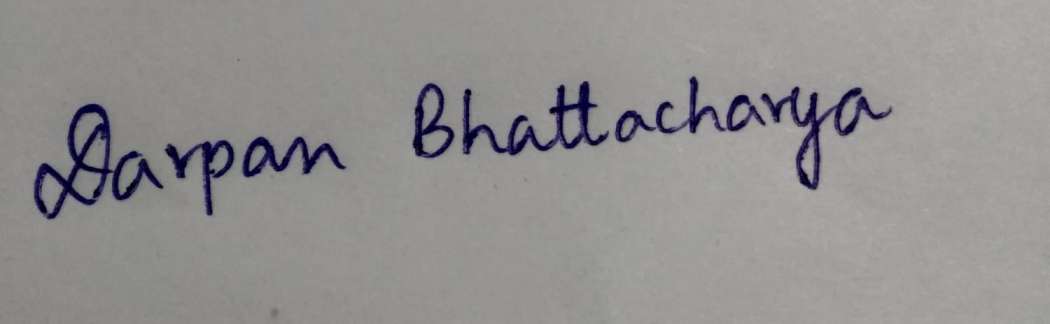 Darpan Bhattacharya